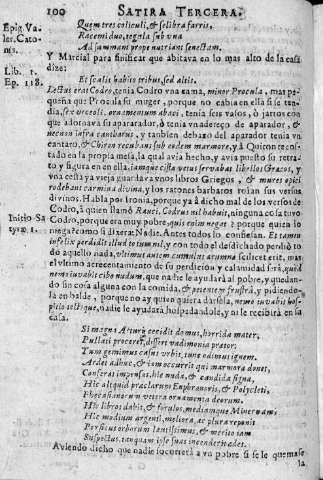 100 SATIRA TERCERA.
Quem tres coliculi, & selibra farris,
Racemi duo, tegula sub vna
Ad summam prope nutriant senectam.
Epig. Va
ler. Cato-
nis.
Y Marcial para sinificar que abitava en lo mas alto de la casa
dize:
Et scalis habito tribus, sed altis.
Lib. 1.
Ep. 118.
Lectus erat Codro, tenia Codro vna cama, minor Procula, mas pe-
queña que Procula su muger, porque no cabia en ella si se ten-
dia, sex urceoli, ornamentum abaci, tenia seis vasos, ò jarros con
que adornava su aparador, ò tenia vn adereço de aparador, &
necnon infra cantharus, y tambien debaxo del aparador tenia vn
cantaro, & Chiron recubans sub eodem marmore, y à Quiron recos-
tado en la propia mesa, la qual avia hecho, y avia puesto su retra-
to y figura en ella, iamque cista vetus servabat libellos Graecos, y
vna cesta ya vieja guardava vnos libros Griegos, & mures opici
rodebant carmina divina, y los ratones barbaros roian sus versos
divinos. Habla por Ironia, porque ya à dicho mal de los versos de
Codro, à quien llamò Rauci, Codrus nil habuit, ninguna cosa tuvo
Codro, porque era muy pobre, quis enim negat? porque quien lo
niega? como si dixera: Nadie. Antes todos lo confiesan. Et tamen
infelix perdidit illud totum nil, y con todo el desdichado perdiò to
do aquello nada, vltimus autem cumulus aerumnae scilicet erit, mas
el vltimo acrecentamiento de su perdicion y calamidad serà, quòd
nemo iuvabit cibo nudum, que nadie le ayudarà al pobre, y quedan-
do sin cosa alguna con la comida, & petentem frustra, y pidiendo-
la en balde, porque no ay quien quiera darsela, nemo iuvabit hos-
pitio tectoque, nadie le ayudarà hospedandole, y ni le recibirà en su
casa.
Inicio Sa-
tyrae 1.
Si magna Arturij cecidit domus, horrida mater,
Pullati proceres, differt vadimonia praetor;
Tum gemimus casus vrbis, tunc odimus ignem.
Ardet adhuc, & iam occurrit qui marmora donet,
Conferat impensas, hic nuda, & candida signa,
Hic aliquid praeclarum Euphranoris, & Polycleti,
Phaecasianorum vetera ornamenta deorum,
Hic libros dabit, & forulos, mediamque Minervam;
Hic modium argenti, meliora, ac plura reponit
Persicus orborum lautissimus, & merito iam
Suspectus, tanquam ipse suas incenderit aedes.
Aviendo dicho que nadie socorrerà a vn pobre si se le quemase
la